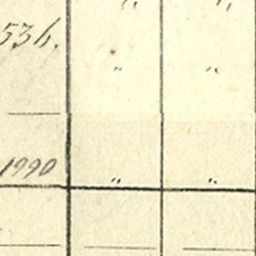 „ „
536. „ „
1990 „ „